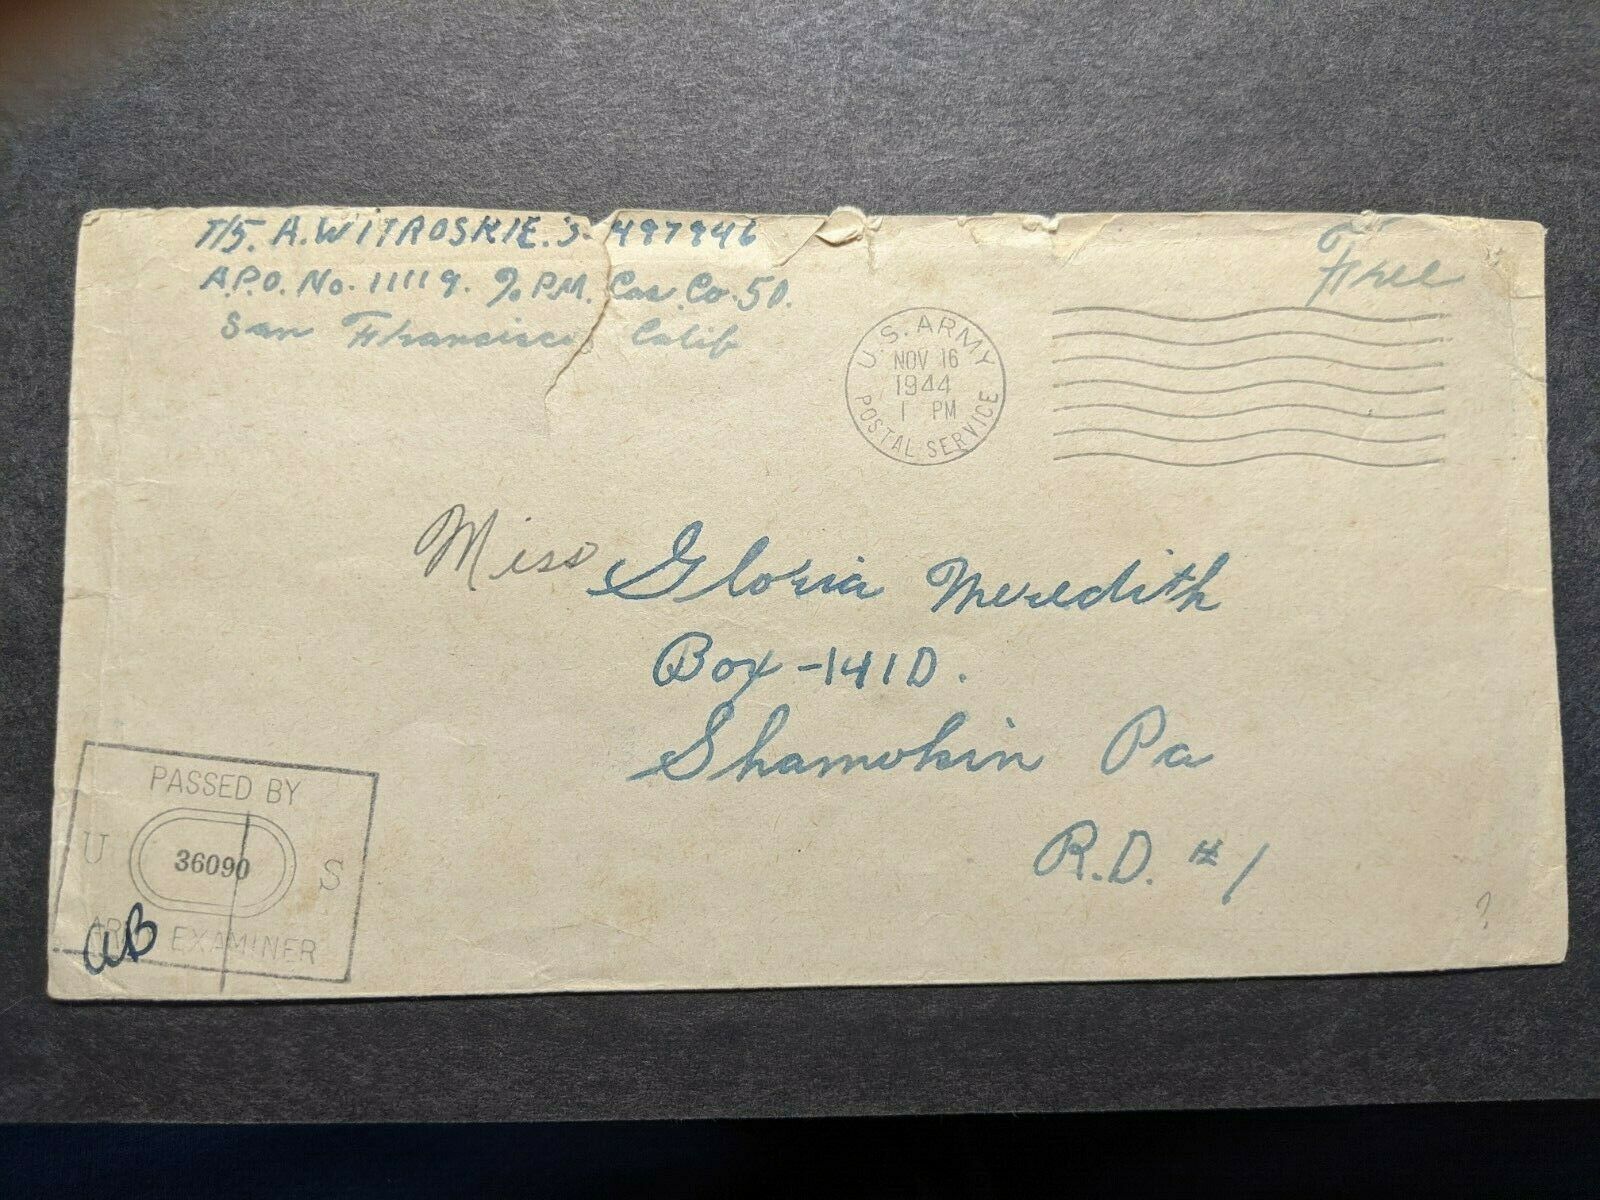 T/5. A. WITROSKIE. 3 497946
A.P.O. No. 11119. % P.M. Cas. Co. 50.
San Francisco Calif
Free
U.S. ARMY
NOV 16
1944
1 PM
POSTAL SERVICE
Miss Gloria Meredith
Box - 141D.
Shamokin Pa
R.D. #1
PASSED BY
U 36090 S
EXAMINER
aB
?